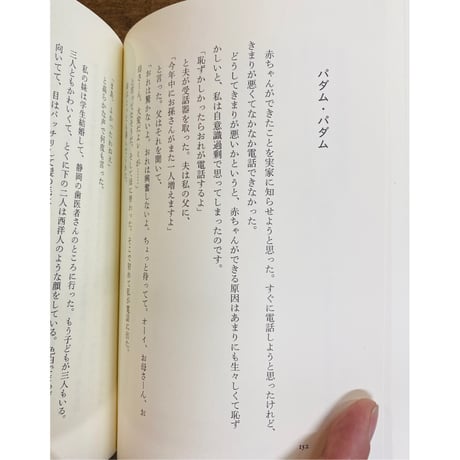 パダム・パダム
赤ちゃんができたことを実家に知らせようと思った。すぐに電話しようと思ったけれど、
きまりが悪くてなかなか電話できなかった。
どうしてきまりが悪いかというと、赤ちゃんができる原因はあまりにも生々しくて恥ず
かしいと、私は自意識過剰で思ってしまったのです。
「恥ずかしかったらおれが電話するよ」
と夫が受話器を取った。夫は私の父に、
「今年中にお孫さんがまた一人増えますよ」
と言った。父はそれを聞いて、
「おれは驚かないよ。おれは興奮しないよ。ちょっと待ってて。オーイ、お母さーん、お
と高らかな声で何度も言った。
私の妹は学生結婚して、静岡の歯医者さんのところに行った。もう子どもが三人もいる。
三人ともかわいくて、とくに下の二人は西洋人のような顔をしている。色白で
向いてて、目はパッチリ
152